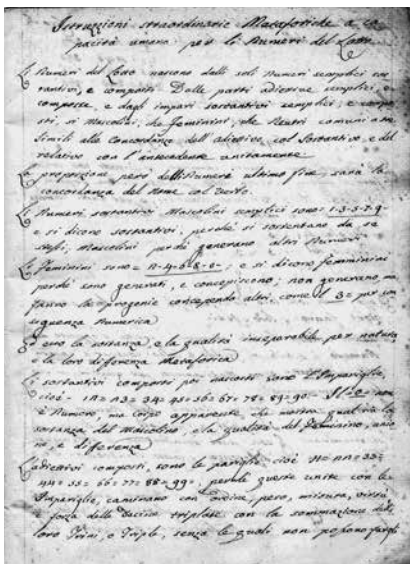 Istruzzioni straordinarie Metaforiche a ca-
pacità umana per li Numeri del Lotto
Li Numeri del Lotto nascono dalli soli Numeri semplici sos-
tantivi, e composti Dalle parti adiettive semplici, e
composte, e dagl'impari sostantivi semplici, e compo-
sti, sì Mascolini, che Feminini, che Neutri comuni a tre
simili alle Concordanze dell'adiettivo col Sostantivo, e del
relativo con l'antecedente unitamente
La proporzione però delli Numeri ultimo fine, sarà la
concordanza del Nome col Verbo.
Li Numeri sostantivi Mascolini semplici sono = 1-3-5-7-9
e si dicono sostantivi, perché si sostentano da se
stessi, Mascolini perché generano altri Numeri
Li Feminini sono = 2-4-6-8-0-; e si dicono femminini
perché sono generati, e concepiscono; non generano, ma
fanno la progenie concependo altri, come il 3= per con-
seguenza Numerica
Ed ecco la sostanza, e la qualità inseparabile per natura,
e la loro differenza Metaforica
Li sostantivi composti poi nascosti sono l'Impariglie,
cioè - 12= 23= 34= 45= 56= 67= 78= 89= 90- Il =0= non
è Numero, ma corpo apparente, che mostra qual sia la
sostanza del Mascolino, e la qualità del Feminino, unio
ni, e differenza
L'adiettivi composti, sono le pariglie, cioè 11= 22= 33=
44= 55= 66= 77= 88= 99=, perché queste unite con le
Impariglie, caminano con ordine, peso, misura, virtù
e forza delle Decine triplate con la sommazione delli
loro Trini, o Triple, senza le quali non possono fargli